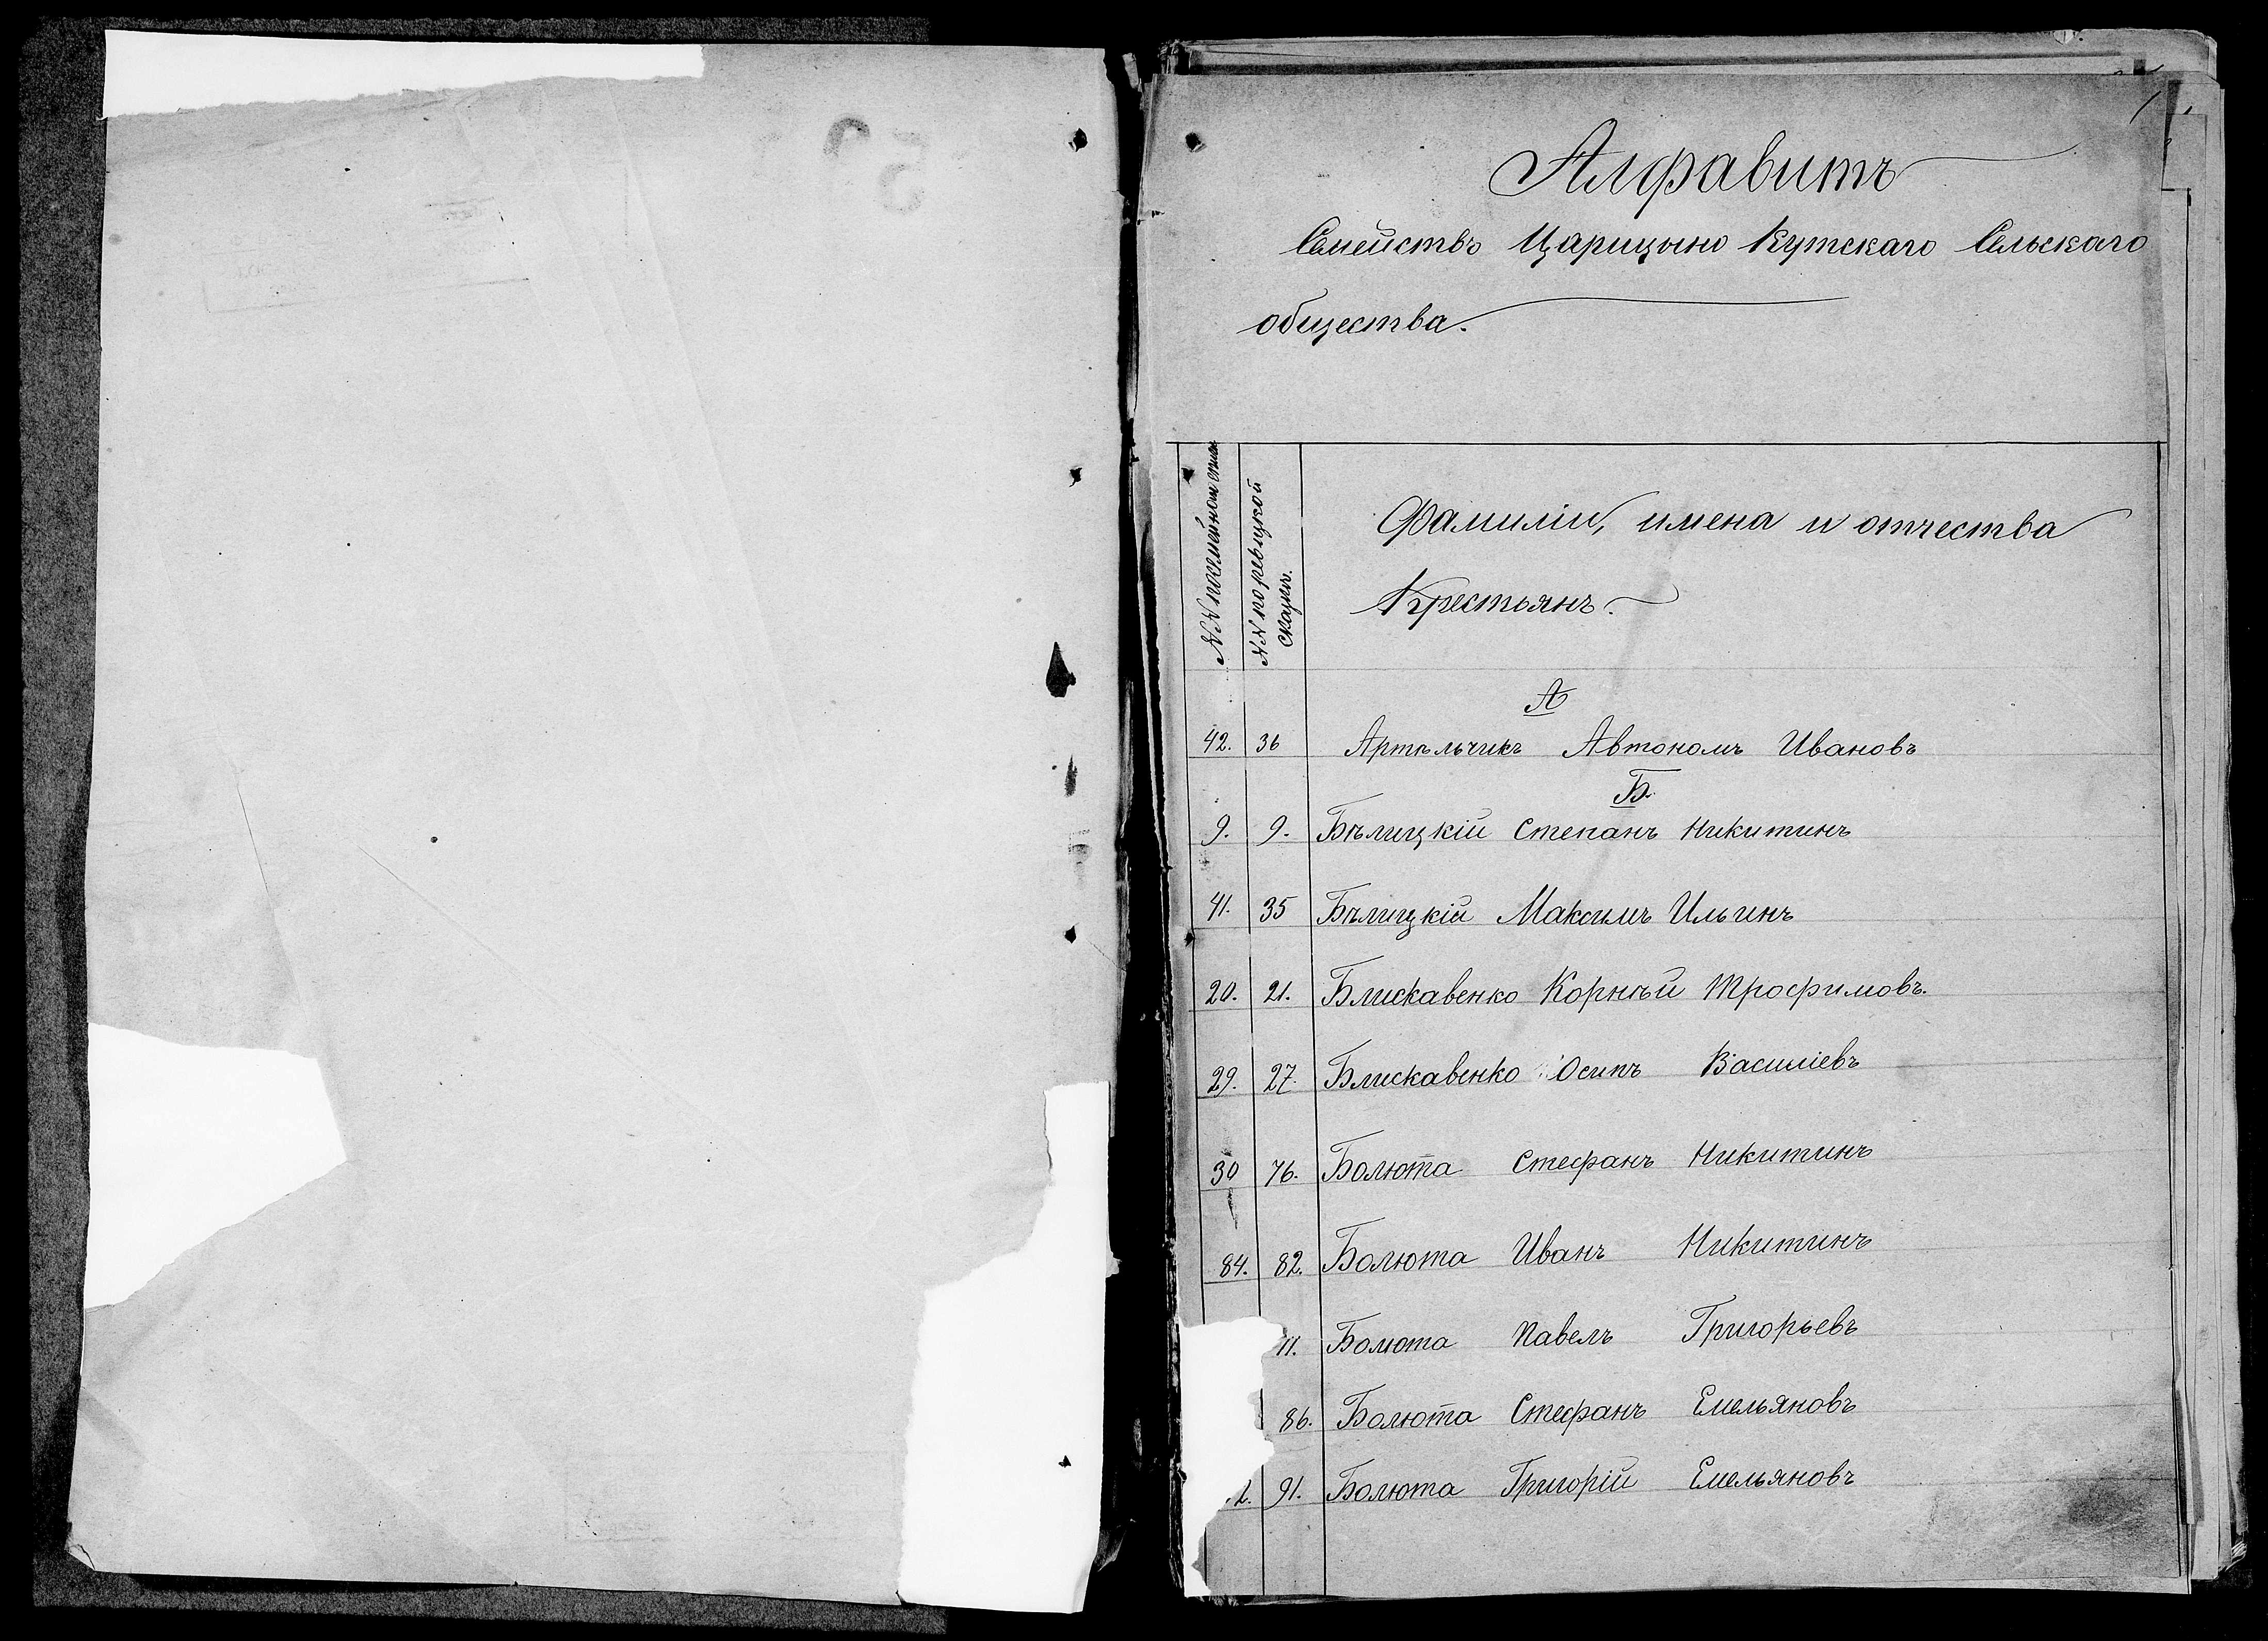 1
Алфавитъ
Семействъ Царицыно Кутскаго Сельскаго
общества.
№№ посемейнаго списка
№№ по ревизской
сказки.
Фамиліи, имена и отчества
Крестьянъ.
А
42. 36 Артѣльчикъ Автономъ Ивановъ
Б.
9. 9. Бѣлицкій Степанъ Никитинъ
41. 35 Бѣлицкій Максимъ Ильинъ
20. 21. Блискавенко Корнѣй Трофимовъ.
29. 27. Блискавенко Осипъ Василіевъ
30 76. Болюта Стефанъ Никитинъ
84. 82. Болюта Иванъ Никитинъ
11. Болюта Павелъ Григорьевъ
86. Болюта Стефанъ Емельяновъ
2. 91. Болюта Григорій Емельяновъ